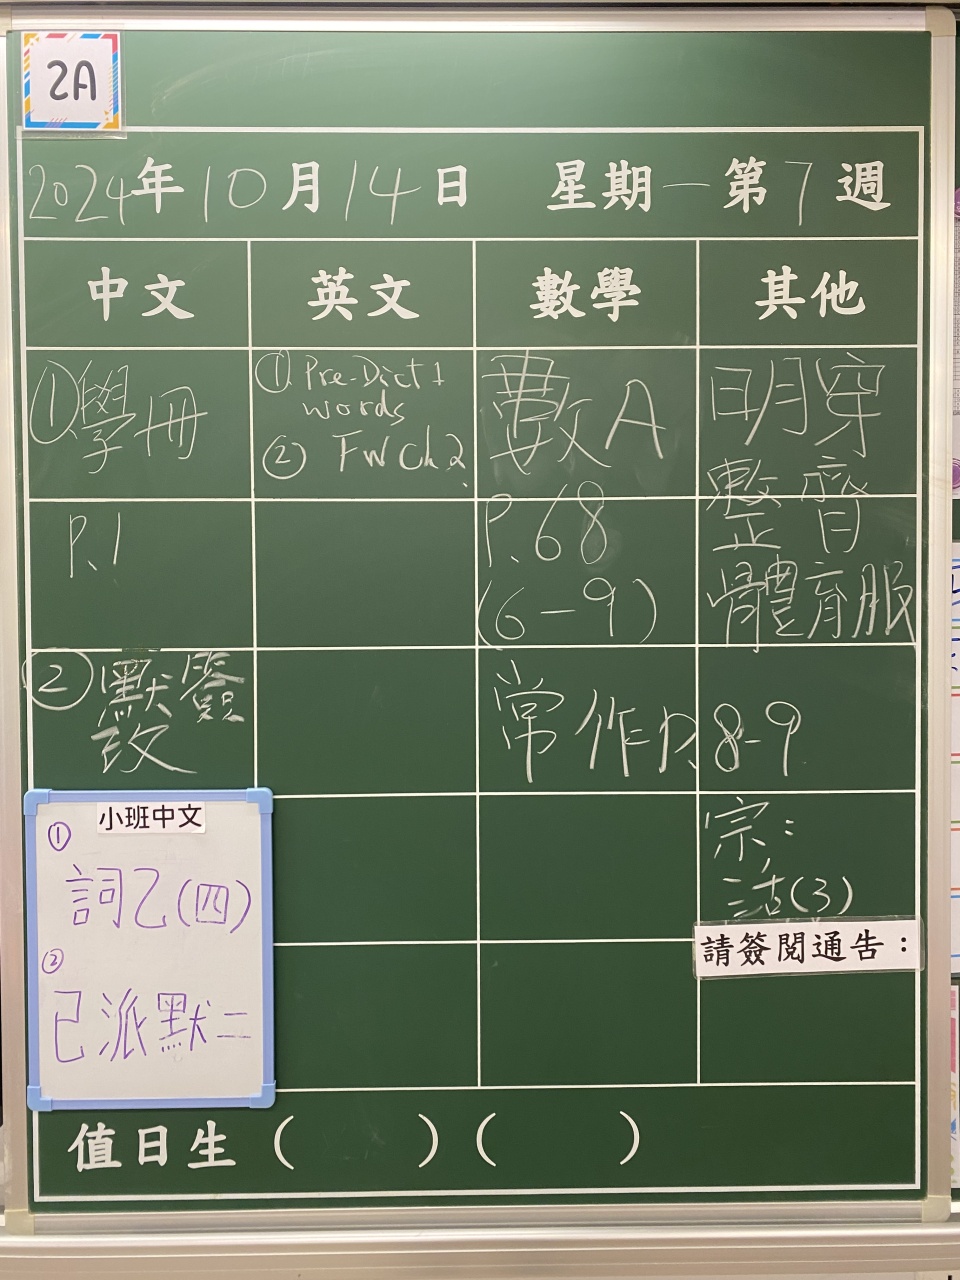 2A
2024年10月14日 星期一第7週
中文 英文 數學 其他
①學冊
P.1
②默簽
改
小班中文
①
詞乙(四)
②
已派默二
① Pre-Dict 1
words
② FW Ch 2
數A
P.68
(6-9)
常作P.8-9
明穿
整齊
體育服
宗:
活(3)
請簽閱通告：
值日生 ( ) ( )